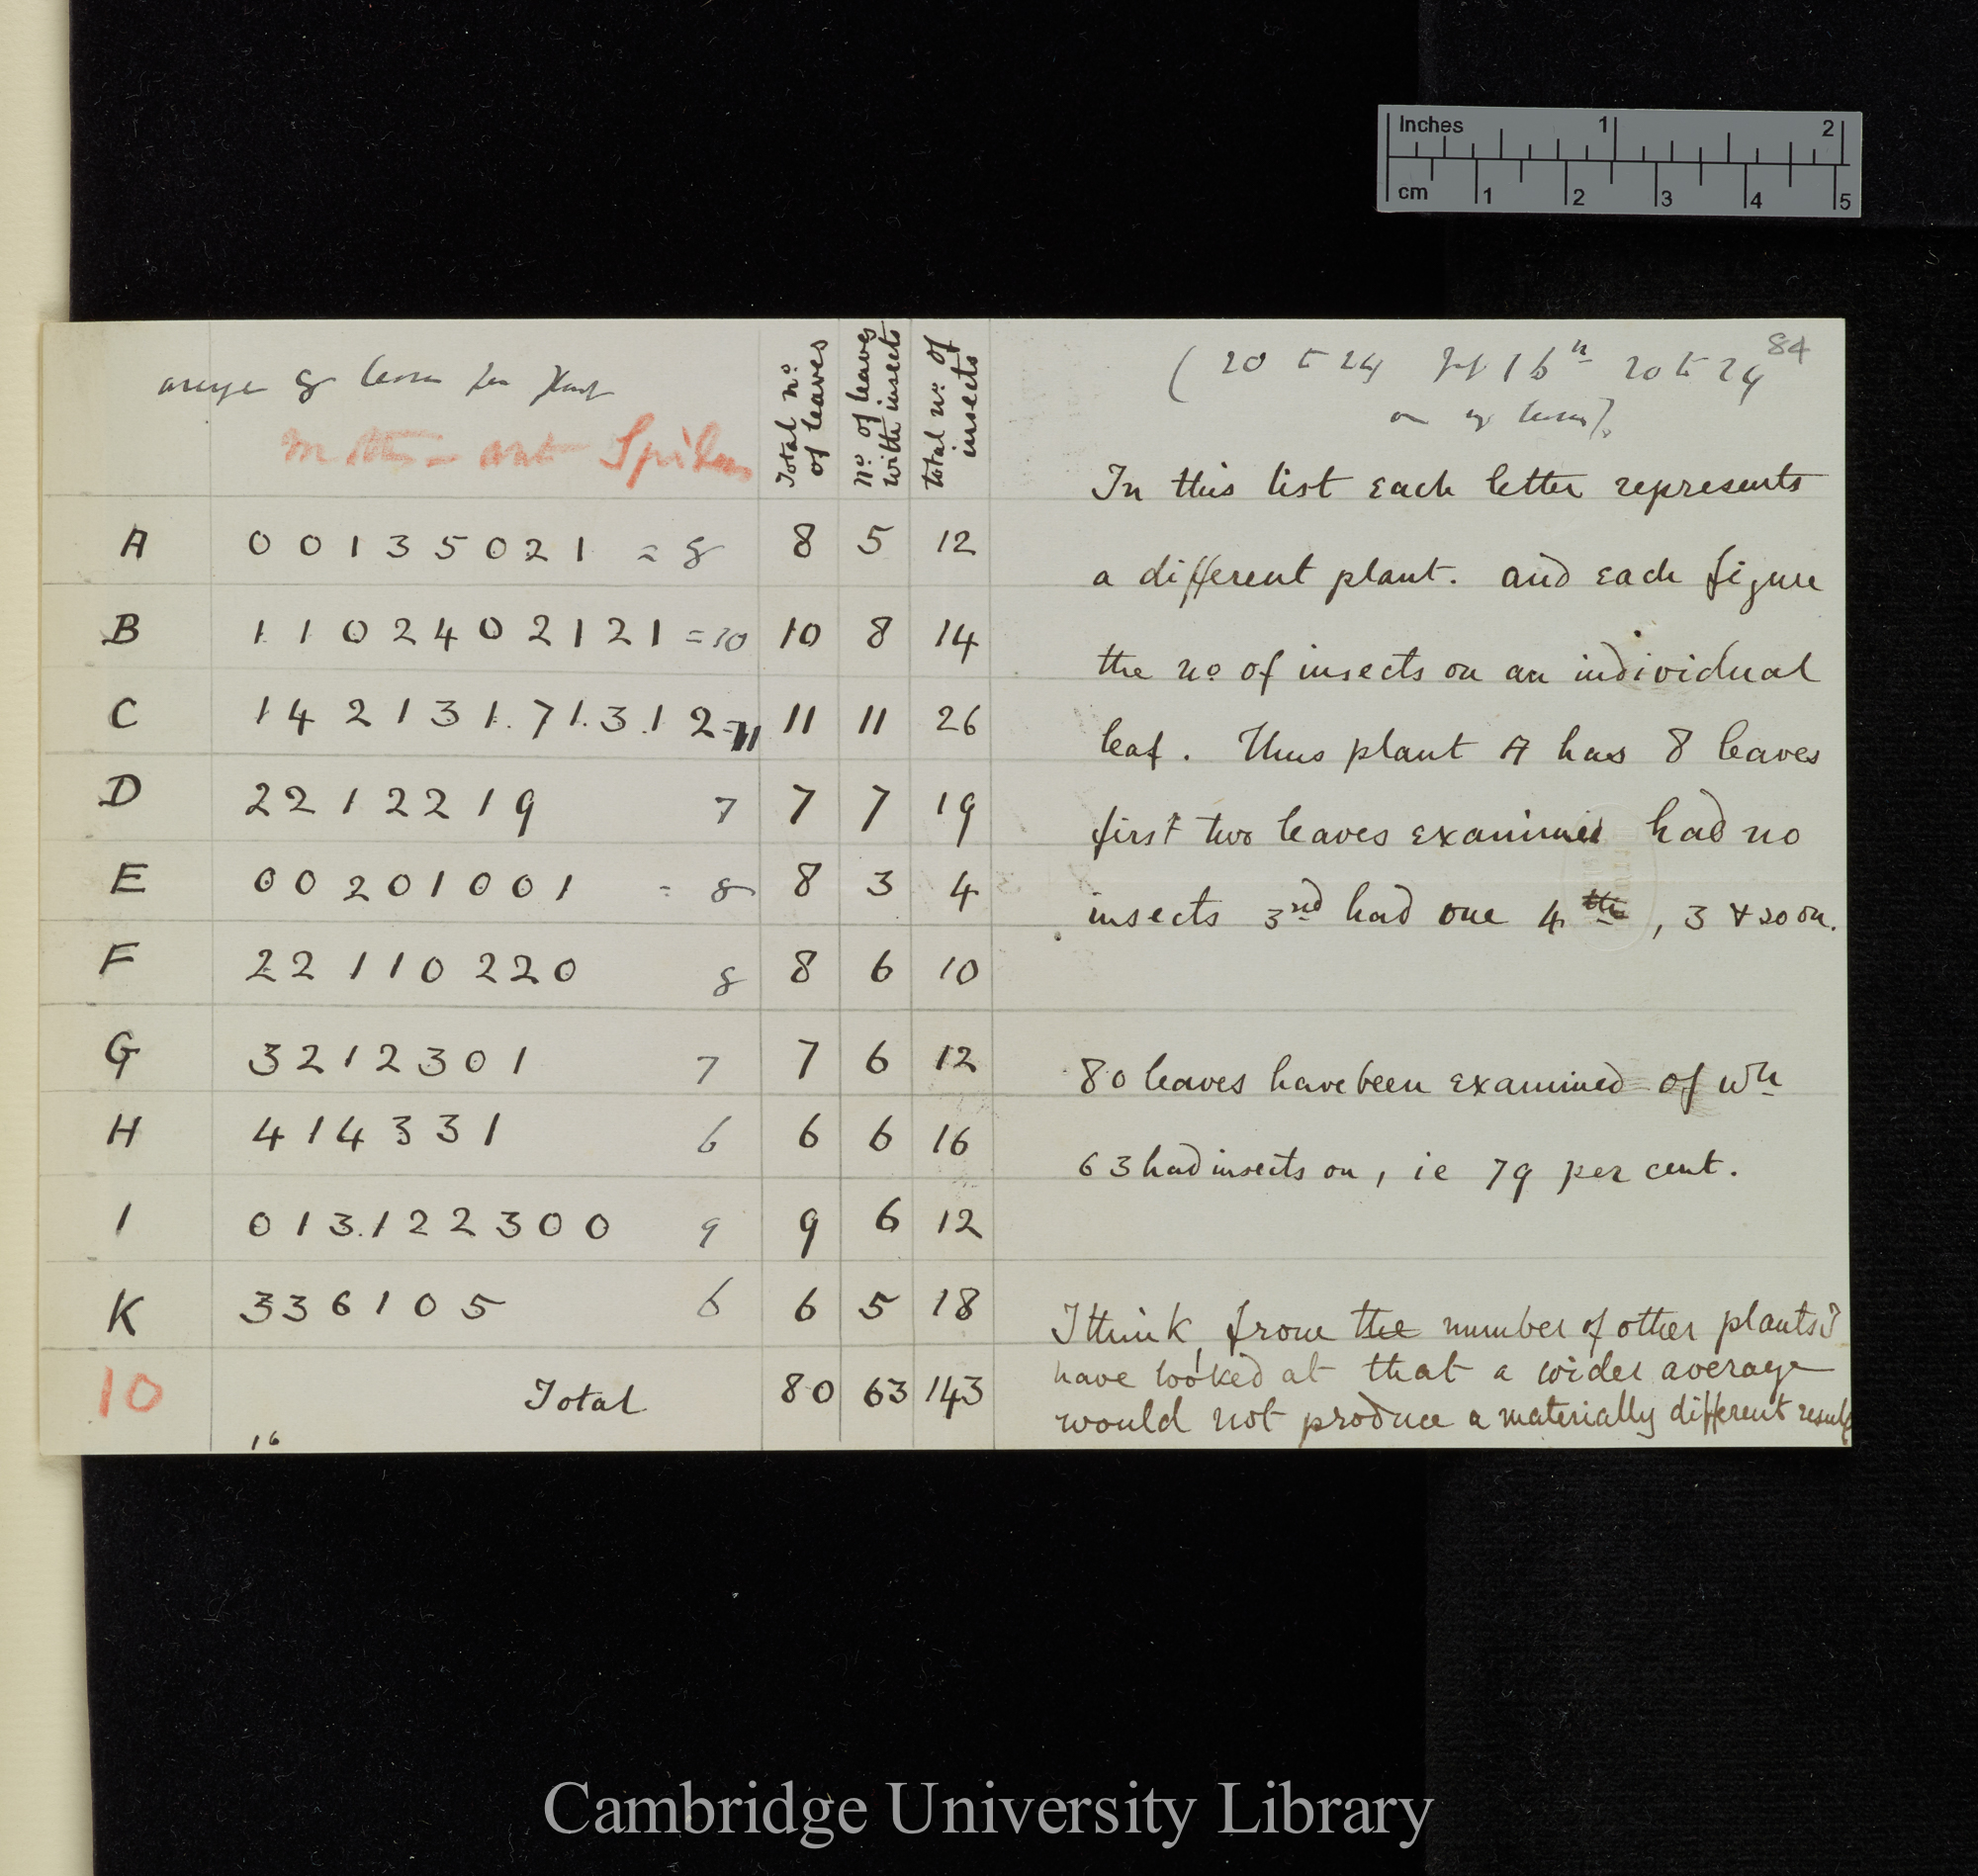 Inches 1 2
cm 1 2 3 4 5
84
average 8 leaves per plant
Total no. of leaves
No. of leaves with insects
total no. of insects
A 0 0 1 3 5 0 2 1 = 8 8 5 12
B 1 1 0 2 4 0 2 1 2 1 = 10 10 8 14
C 1 4 2 1 3 1. 7 1. 3. 1 2 = 11 11 11 26
D 2 2 1 2 2 1 9 7 7 7 19
E 0 0 2 0 1 0 0 1 = 8 8 3 4
F 2 2 1 1 0 2 2 0 8 8 6 10
G 3 2 1 2 3 0 1 7 7 6 12
H 4 1 4 3 3 1 6 6 6 16
I 0 1 3. 1 2 2 3 0 0 9 9 6 12
K 3 3 6 1 0 5 6 6 5 18
10 Total 80 63 143
16
In this list each letter represents
a different plant. and each figure
the no of insects on an individual
leaf. Thus plant A has 8 leaves
first two leaves examined had no
insects 3rd had one 4 th, 3 & so on.
80 leaves have been examined of wh
63 had insects on, ie 79 per cent.
I think, from the number of other plants I
have looked at that a wider average
would not produce a materially different result
Cambridge University Library